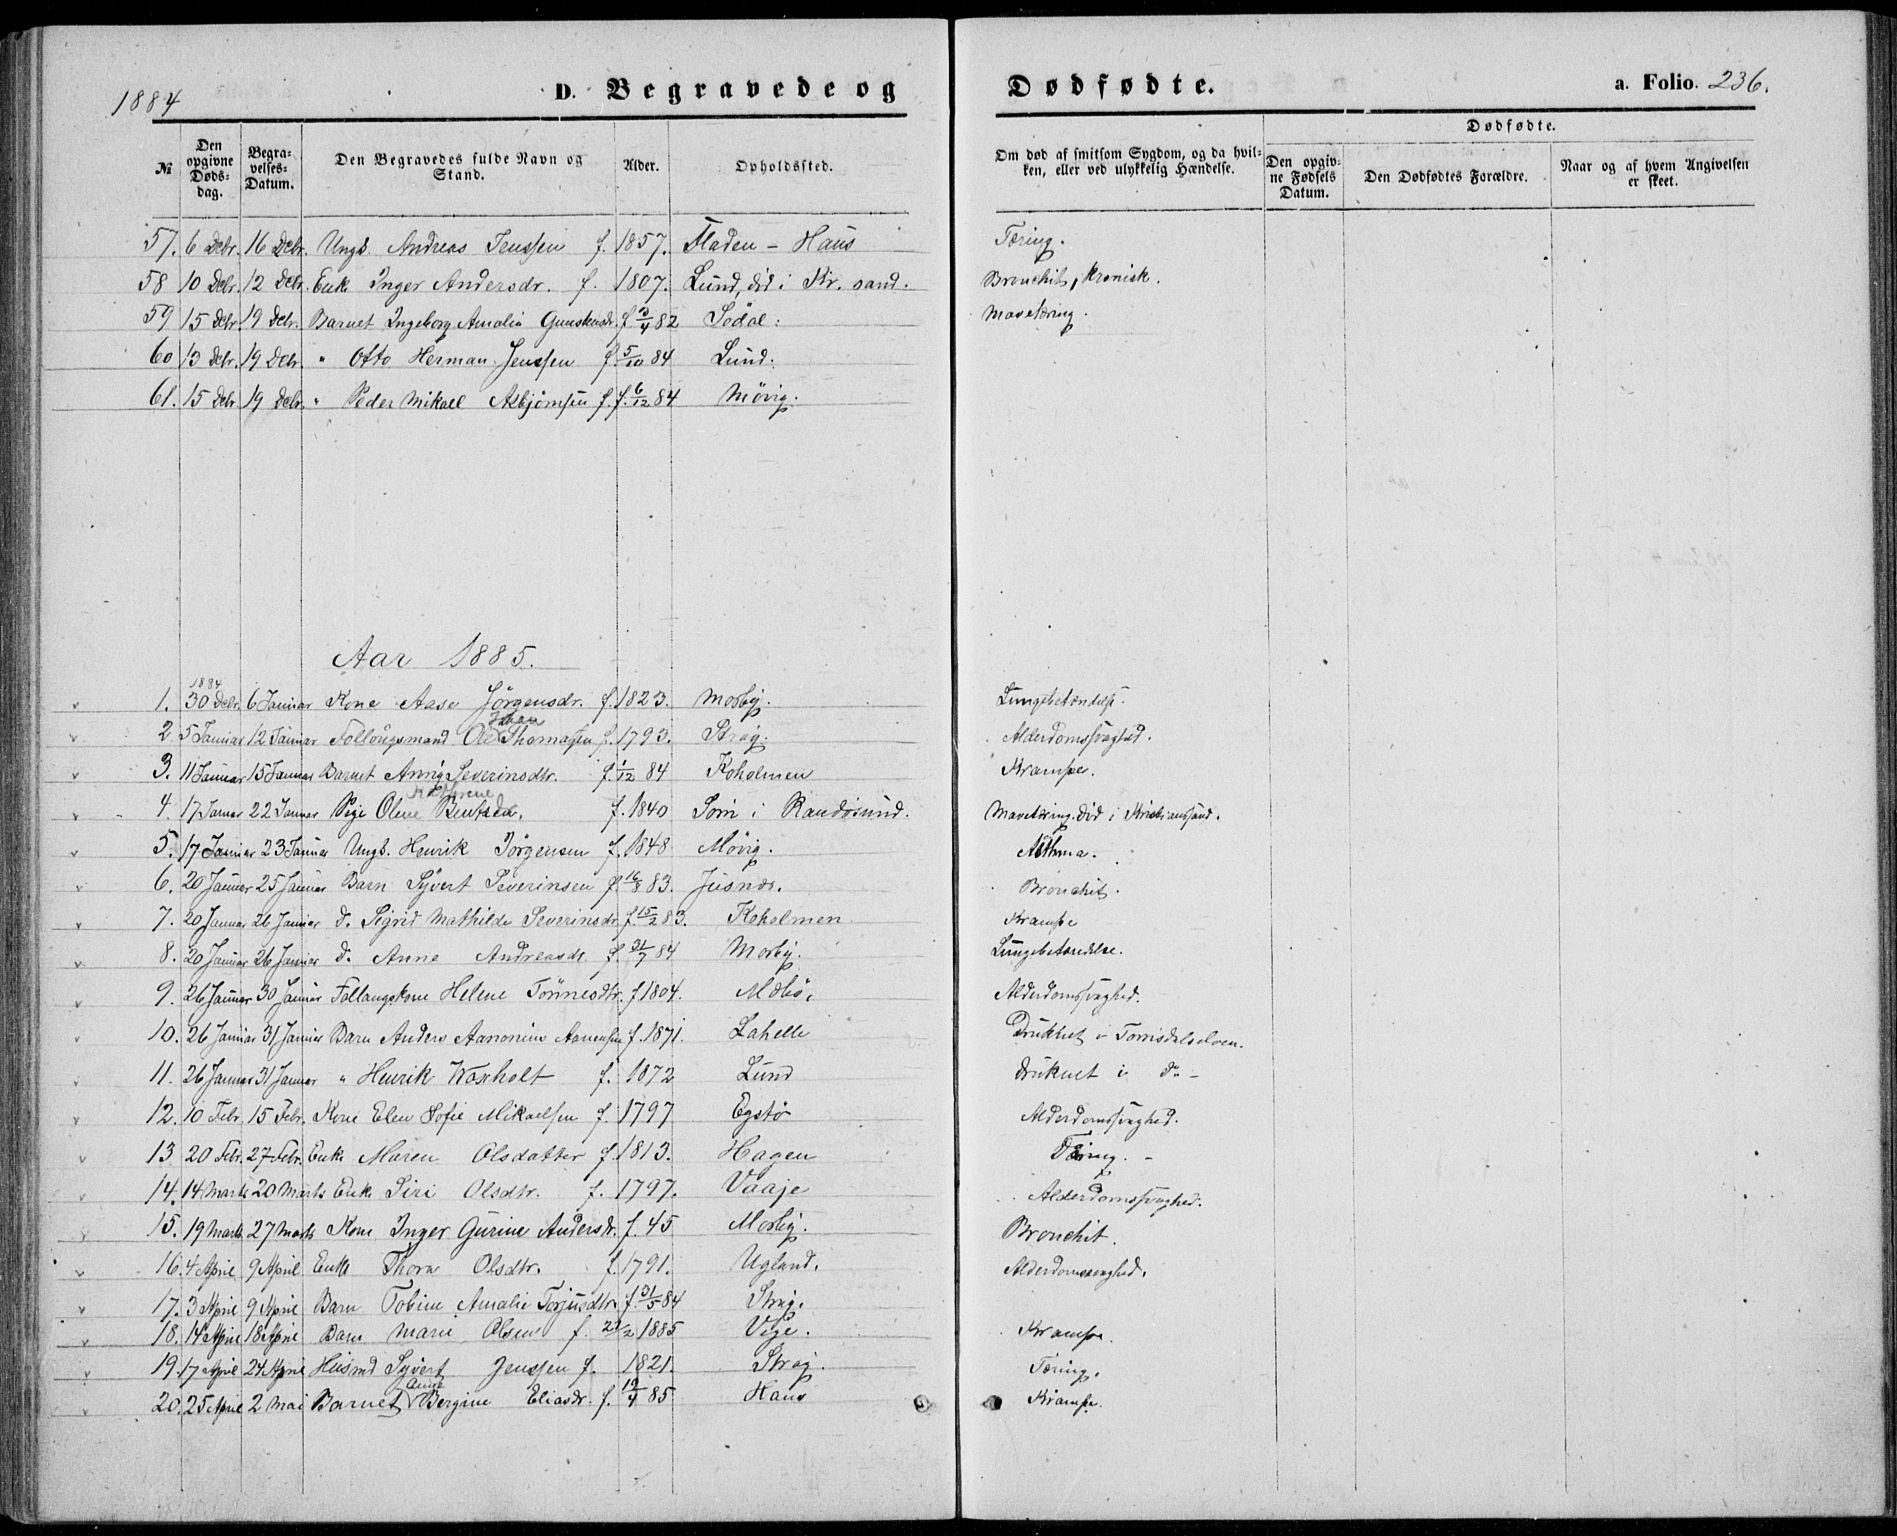 1884
D. Begravede og Dødfødte.
a. Folio. 236.
№
Den opgivne Dødsdag.
Begravelses-Datum.
Den Begravedes fulde Navn og Stand.
Alder.
Opholdssted.
Om død af smitsom Sygdom, og da hvilken, eller ved ulykkelig Hændelse.
Dødfødte.
Den opgivne Fødsels Datum.
Den Dødfødtes Forældre.
Naar og af hvem Angivelsen er skeet.
57. 6 Debr. 16 Debr. Ungk. Andreas Jenssen f. 1857. Fladen - Haus Tæring.
58 10 Debr. 12 Debr. Enke Inger Andersdr. f. 1807. Lund, död i Kr. sand. Bronchit, kronisk.
59 15 Debr. 19 Debr. Barnet Ingeborg Amalia f. 82 Södal: Mavetæring.
60 13 Debr. 19 Debr. " Otto Herman Jenssen f. 5/10 84 Lund.
61. 15 Debr. 19 Debr. " Peder Mikael Asbjörnsen f. f. 6/12 84 Mövig.
Aar 1885.
1884
1. 30 Debr. 6 Januar Kone Aase Jörgensdr. f. 1823. Mosby. Lungebetændelse.
Johan
2. 5 Januar 12 Januar Follougsmand Ole Thomassen f. 1793. Strag. Alderdomssvaghed.
3. 11 Januar 15 Januar Barnet Annig Severinsdtr. f. 1/12 84 Koholmen Krampe.
Kathrine
4. 17 Januar 22 Januar Pige Olene Bentsen. f. 1840 Som i Randösund. Mavetæring. död i Kristianssand.
5. 17 Januar 23 Januar Ungk. Henrik Jörgensen f. 1848 Mövig. Asthma.
6. 20 Januar 25 Januar Barn Syvert Severinsen f. 16/8 83. Jusnes. Bronchit.
7. 20 Januar 26 Januar d. Sigrid Mathilde Severinsdr f. 15/2 83. Koholmen Krampe
8. 20 Januar 26 Januar d. Anne Andreasdr. f. 31/7 84 Mosby. Lungebetændelse.
9. 26 Januar 30 Januar Follaugskone Helene Tönnesdtr. f 1804. Mæbö. Alderdomssvaghed.
10. 26 Januar 31 Januar Barn Anders Aanonius Aanensen f. 1871. Lahelle Druknet i Torrisdalselven.
11. 26 Januar 31 Januar " Henrik Woxholt f. 1872 Lund druknet i do -
12. 10 Febr. 15 Febr. Kone Elen Sofie Mikaelsen f. 1797 Egstö Alderdomssvaghed.
13 20 Febr. 27 Febr. Enke Maren Olsdatter f. 1813. Hagen Tæring. -
14. 14 Marts 20 Marts Enke Siri Olsdtr. f. 1797. Vaaje Alderdomssvaghed.
15. 19 Marts 27 Marts Kone Inger Gurine Andersdr. f. 45 Mosby. Bronchit.
16. 4 April 9 April Enke Thora Olsdtr. f. 1791. Ugland. Alderdomssvaghed.
17. 3 April 9 April Barn Tobine Amalie Torjusdtr f. 31/5 84 Strag.
18. 14 April 18 April Barn Marie Olsen f. 1885 Vige. Krampe.
19. 17 April 24 April Husmd Syvert Jenssen f. 1821. Strag. Tæring.
Anne
20. 25 April 2 Mai Barnet Bergine Eliasdr. f. 19/4 85 Haus Krampe.